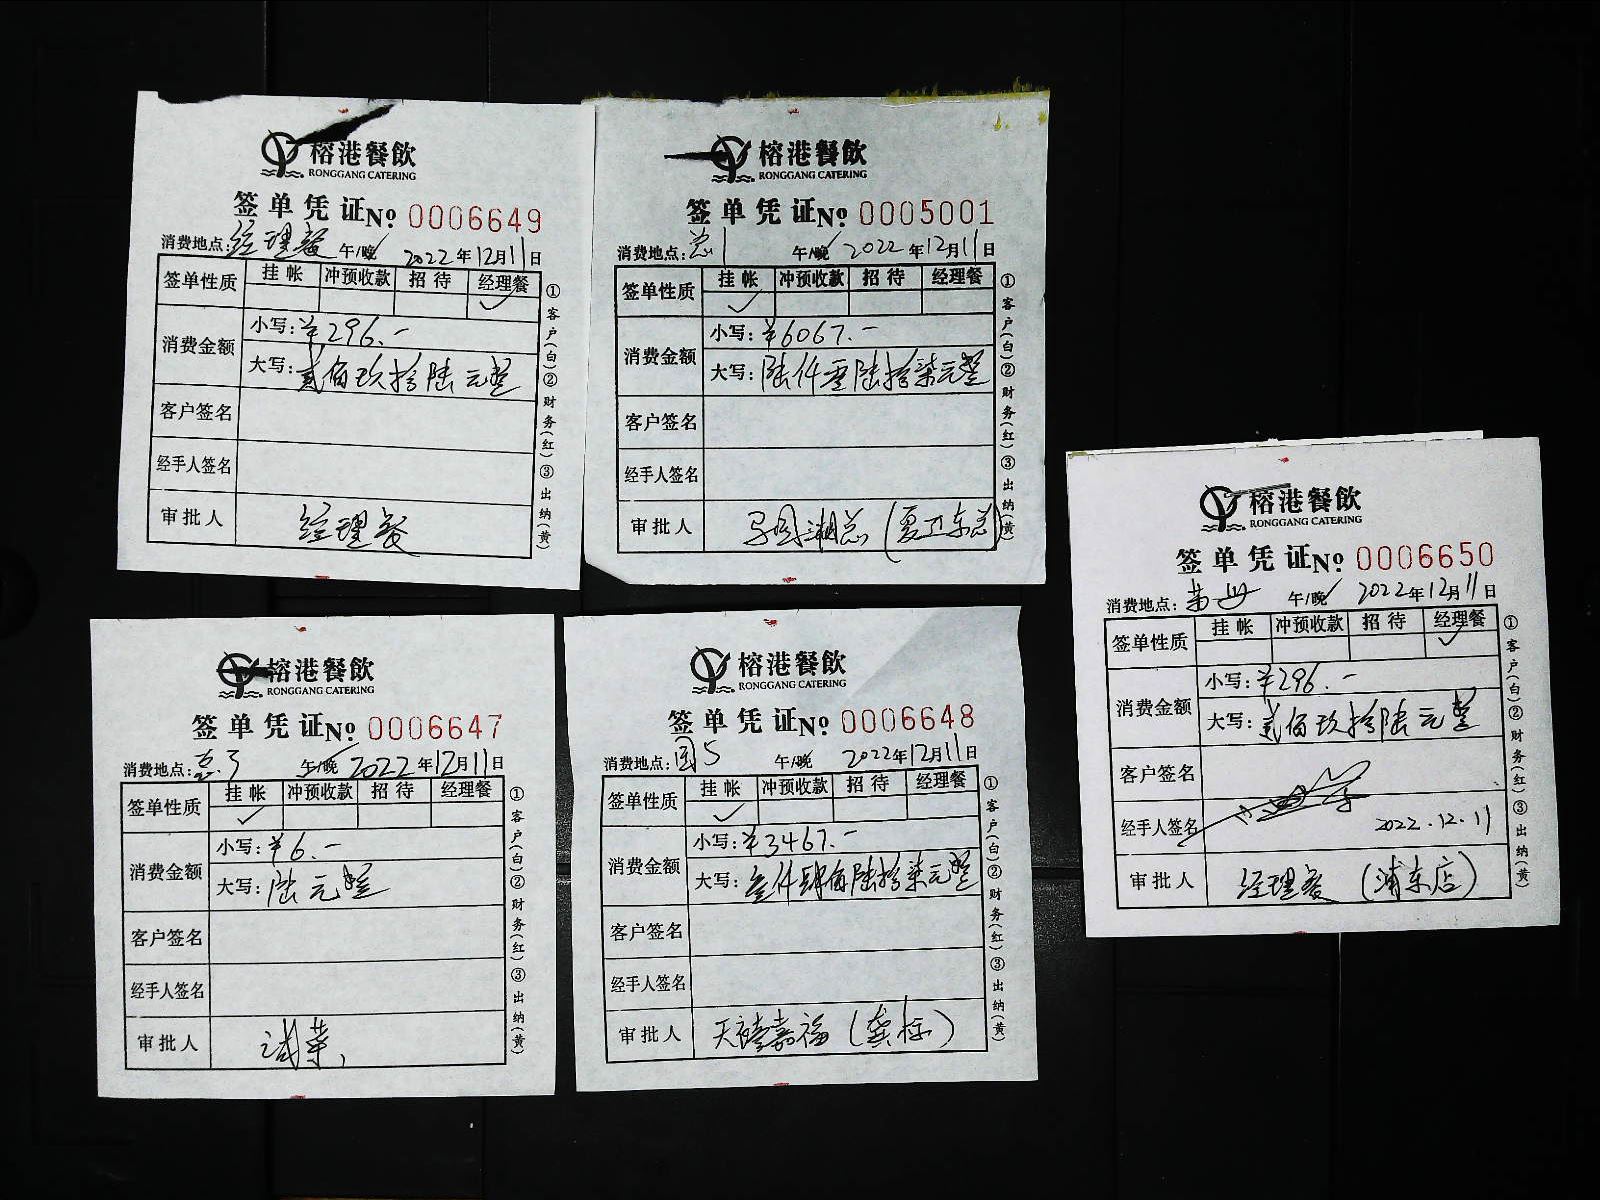 榕港餐飲
RONGGANG CATERING
签单凭证№ 0006649
消费地点：经理餐 午/晚 2022年12月11日
签单性质 挂帐 冲预收款 招待 经理餐 ✓
消费金额 小写：¥296.-
大写：贰佰玖拾陆元整
客户签名
经手人签名
审批人 经理餐
①客户(白)②财务(红)③出纳(黄)
榕港餐飲
RONGGANG CATERING
签单凭证№ 0005001
消费地点：总1 午/晚 2022年12月11日
签单性质 挂帐 ✓ 冲预收款 招待 经理餐
消费金额 小写：¥6067.-
大写：陆仟零陆拾柒元整
客户签名
经手人签名
审批人 马国湘总(夏卫东总)
①客户(白)②财务(红)③出纳(黄)
榕港餐飲
RONGGANG CATERING
签单凭证№ 0006647
消费地点： 午/晚 2022年12月11日
签单性质 挂帐 ✓ 冲预收款 招待 经理餐
消费金额 小写：¥6.-
大写：陆元整
客户签名
经手人签名
审批人 试菜
①客户(白)②财务(红)③出纳(黄)
榕港餐飲
RONGGANG CATERING
签单凭证№ 0006648
消费地点：国5 午/晚 2022年12月11日
签单性质 挂帐 ✓ 冲预收款 招待 经理餐
消费金额 小写：¥3467.-
大写：叁仟肆佰陆拾柒元整
客户签名
经手人签名
审批人 天禧嘉福(龚标)
①客户(白)②财务(红)③出纳(黄)
榕港餐飲
RONGGANG CATERING
签单凭证№ 0006650
消费地点： 午/晚 2022年12月11日
签单性质 挂帐 冲预收款 招待 经理餐 ✓
消费金额 小写：¥296.-
大写：贰佰玖拾陆元整
客户签名
经手人签名 2022.12.11
审批人 经理餐(浦东店)
①客户(白)②财务(红)③出纳(黄)